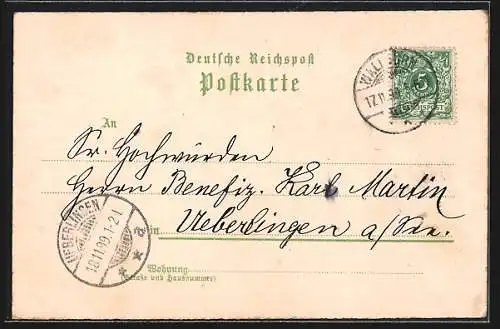 Deutsche Reichspost
Postkarte
WALLDÜRN
17.11.9
5
REICHSPOST
An
Sr. Hochwürden
Herrn Benefiz. Karl Martin
in Ueberlingen a/See.
UEBERLINGEN
18.11.99.1-2N
Wohnung
(Straße und Hausnummer)